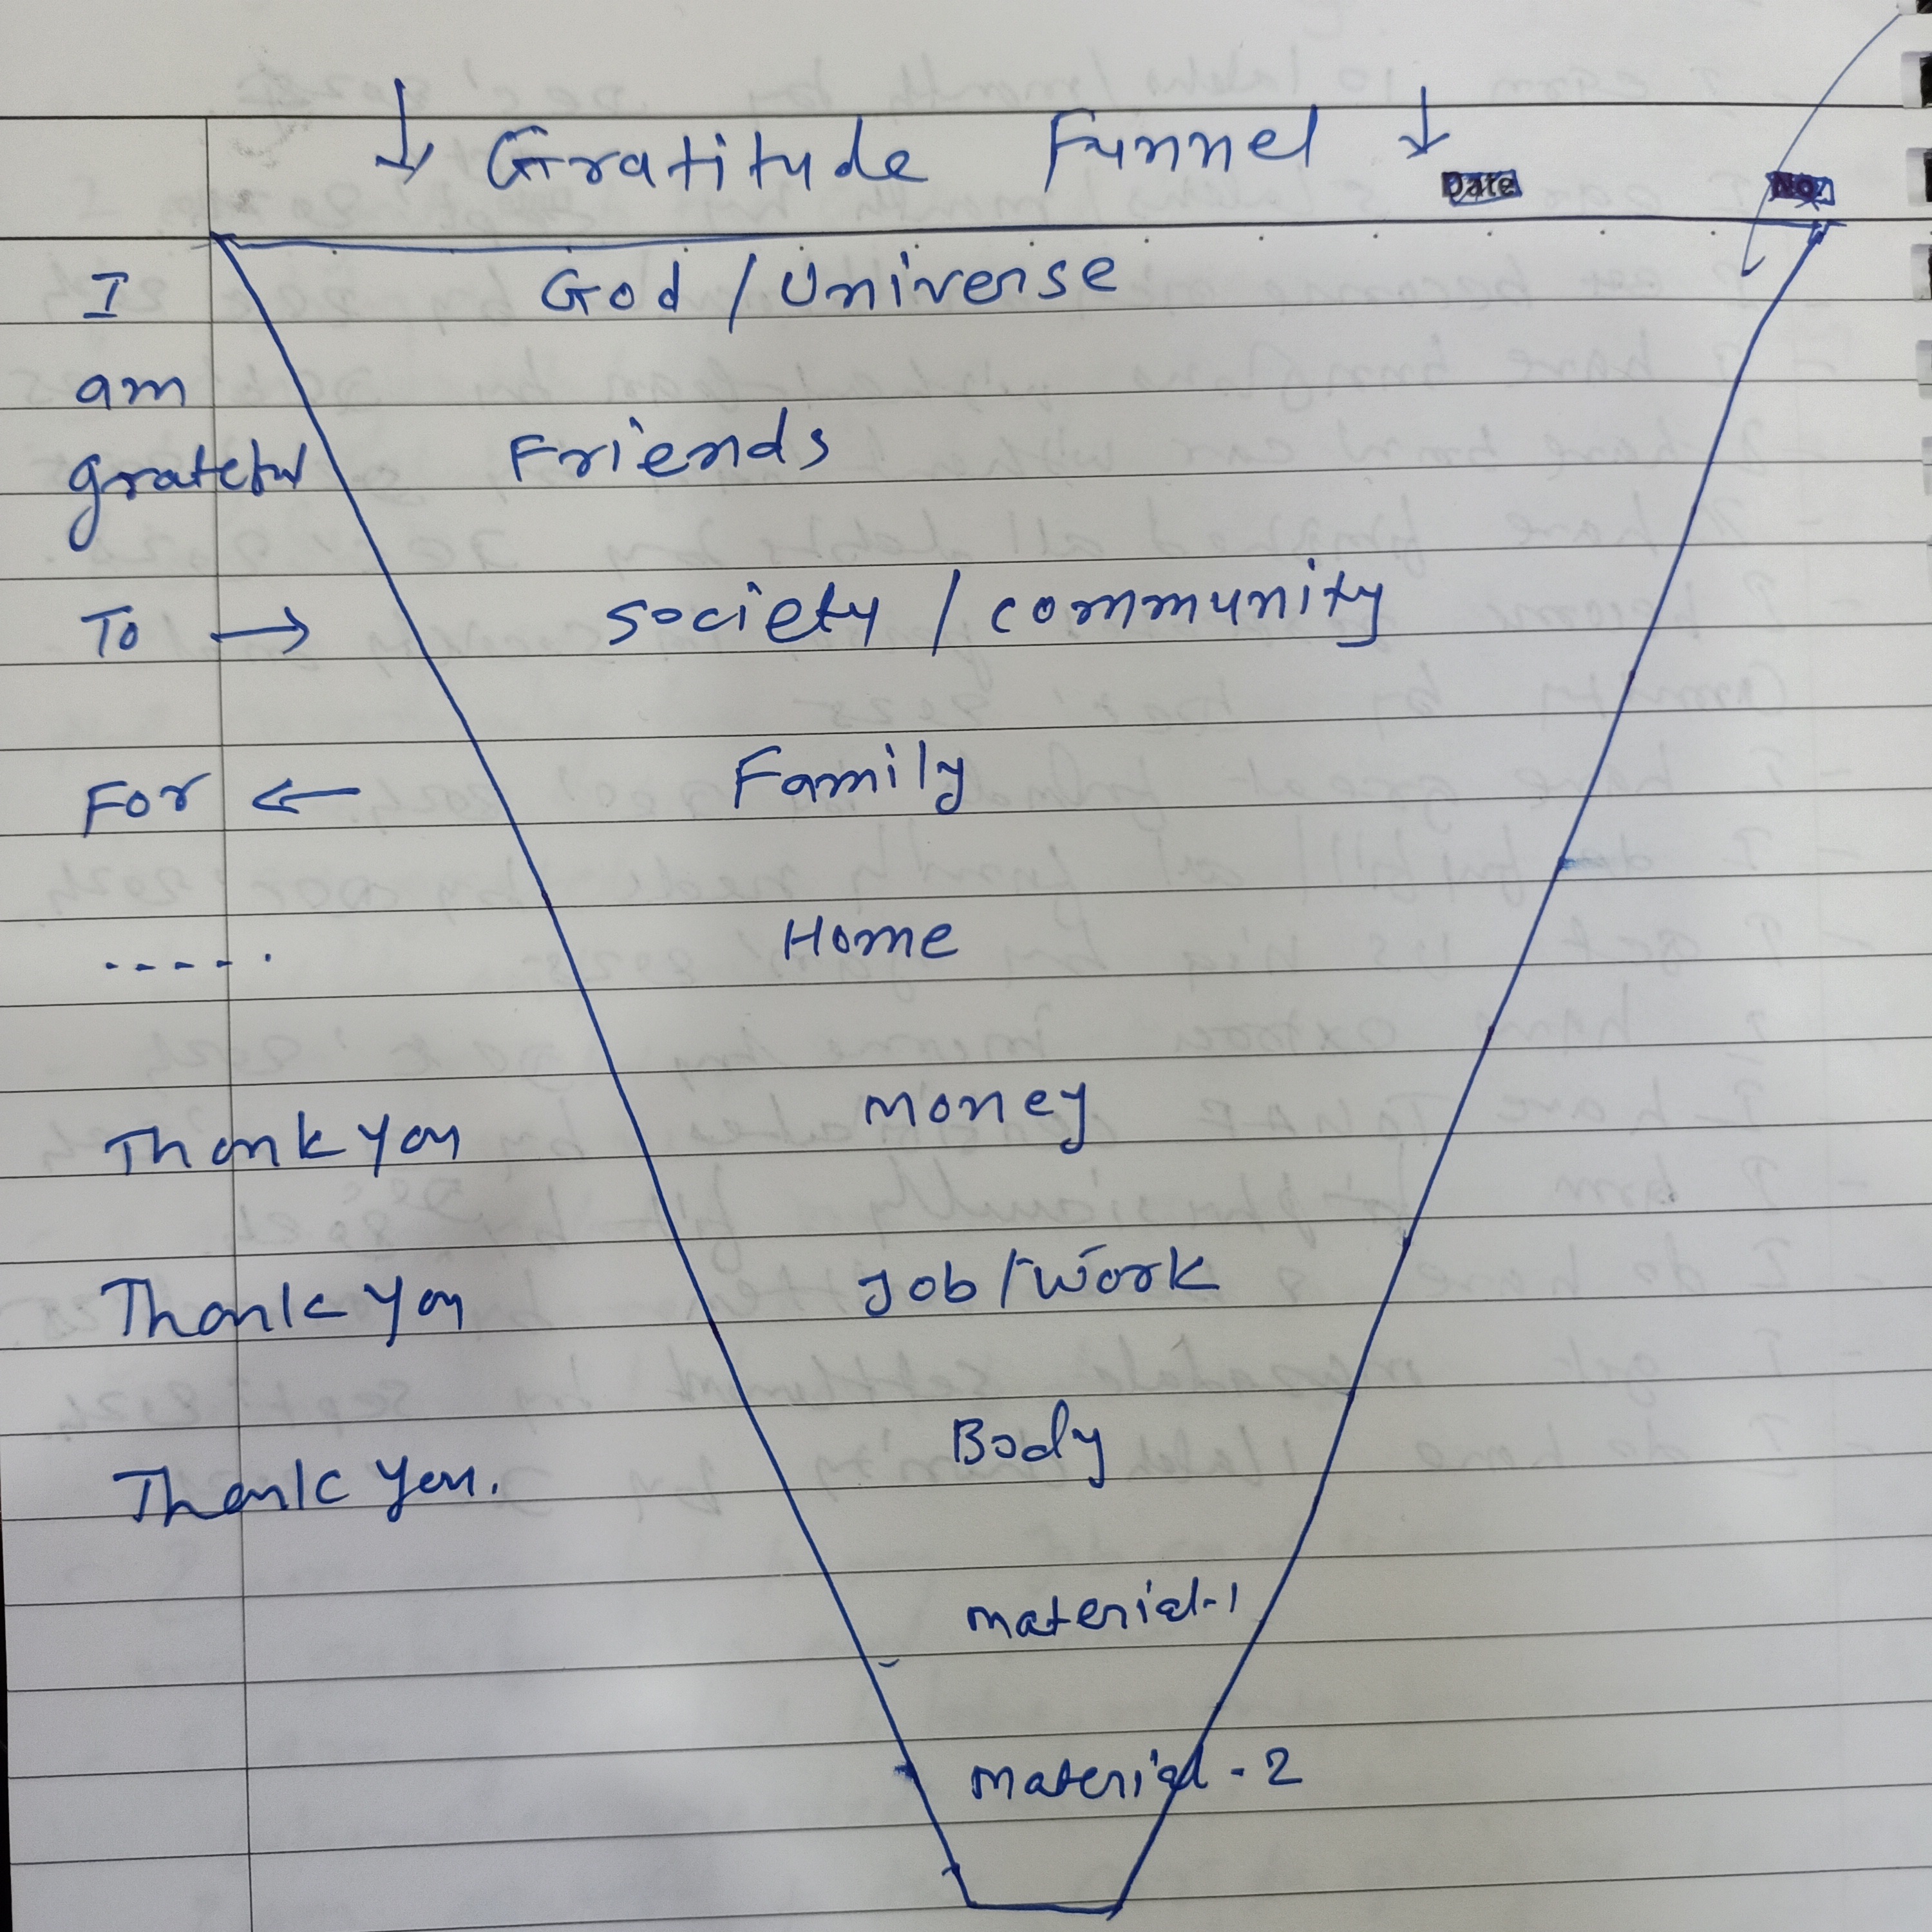 ↓ Gratitude Funnel ↓
Date No.
I God / Universe
am
grateful Friends
To → society / community
For ← Family
------ Home
Thank you money
Thank you Job / work
Body
Thank you.
material-1
material - 2